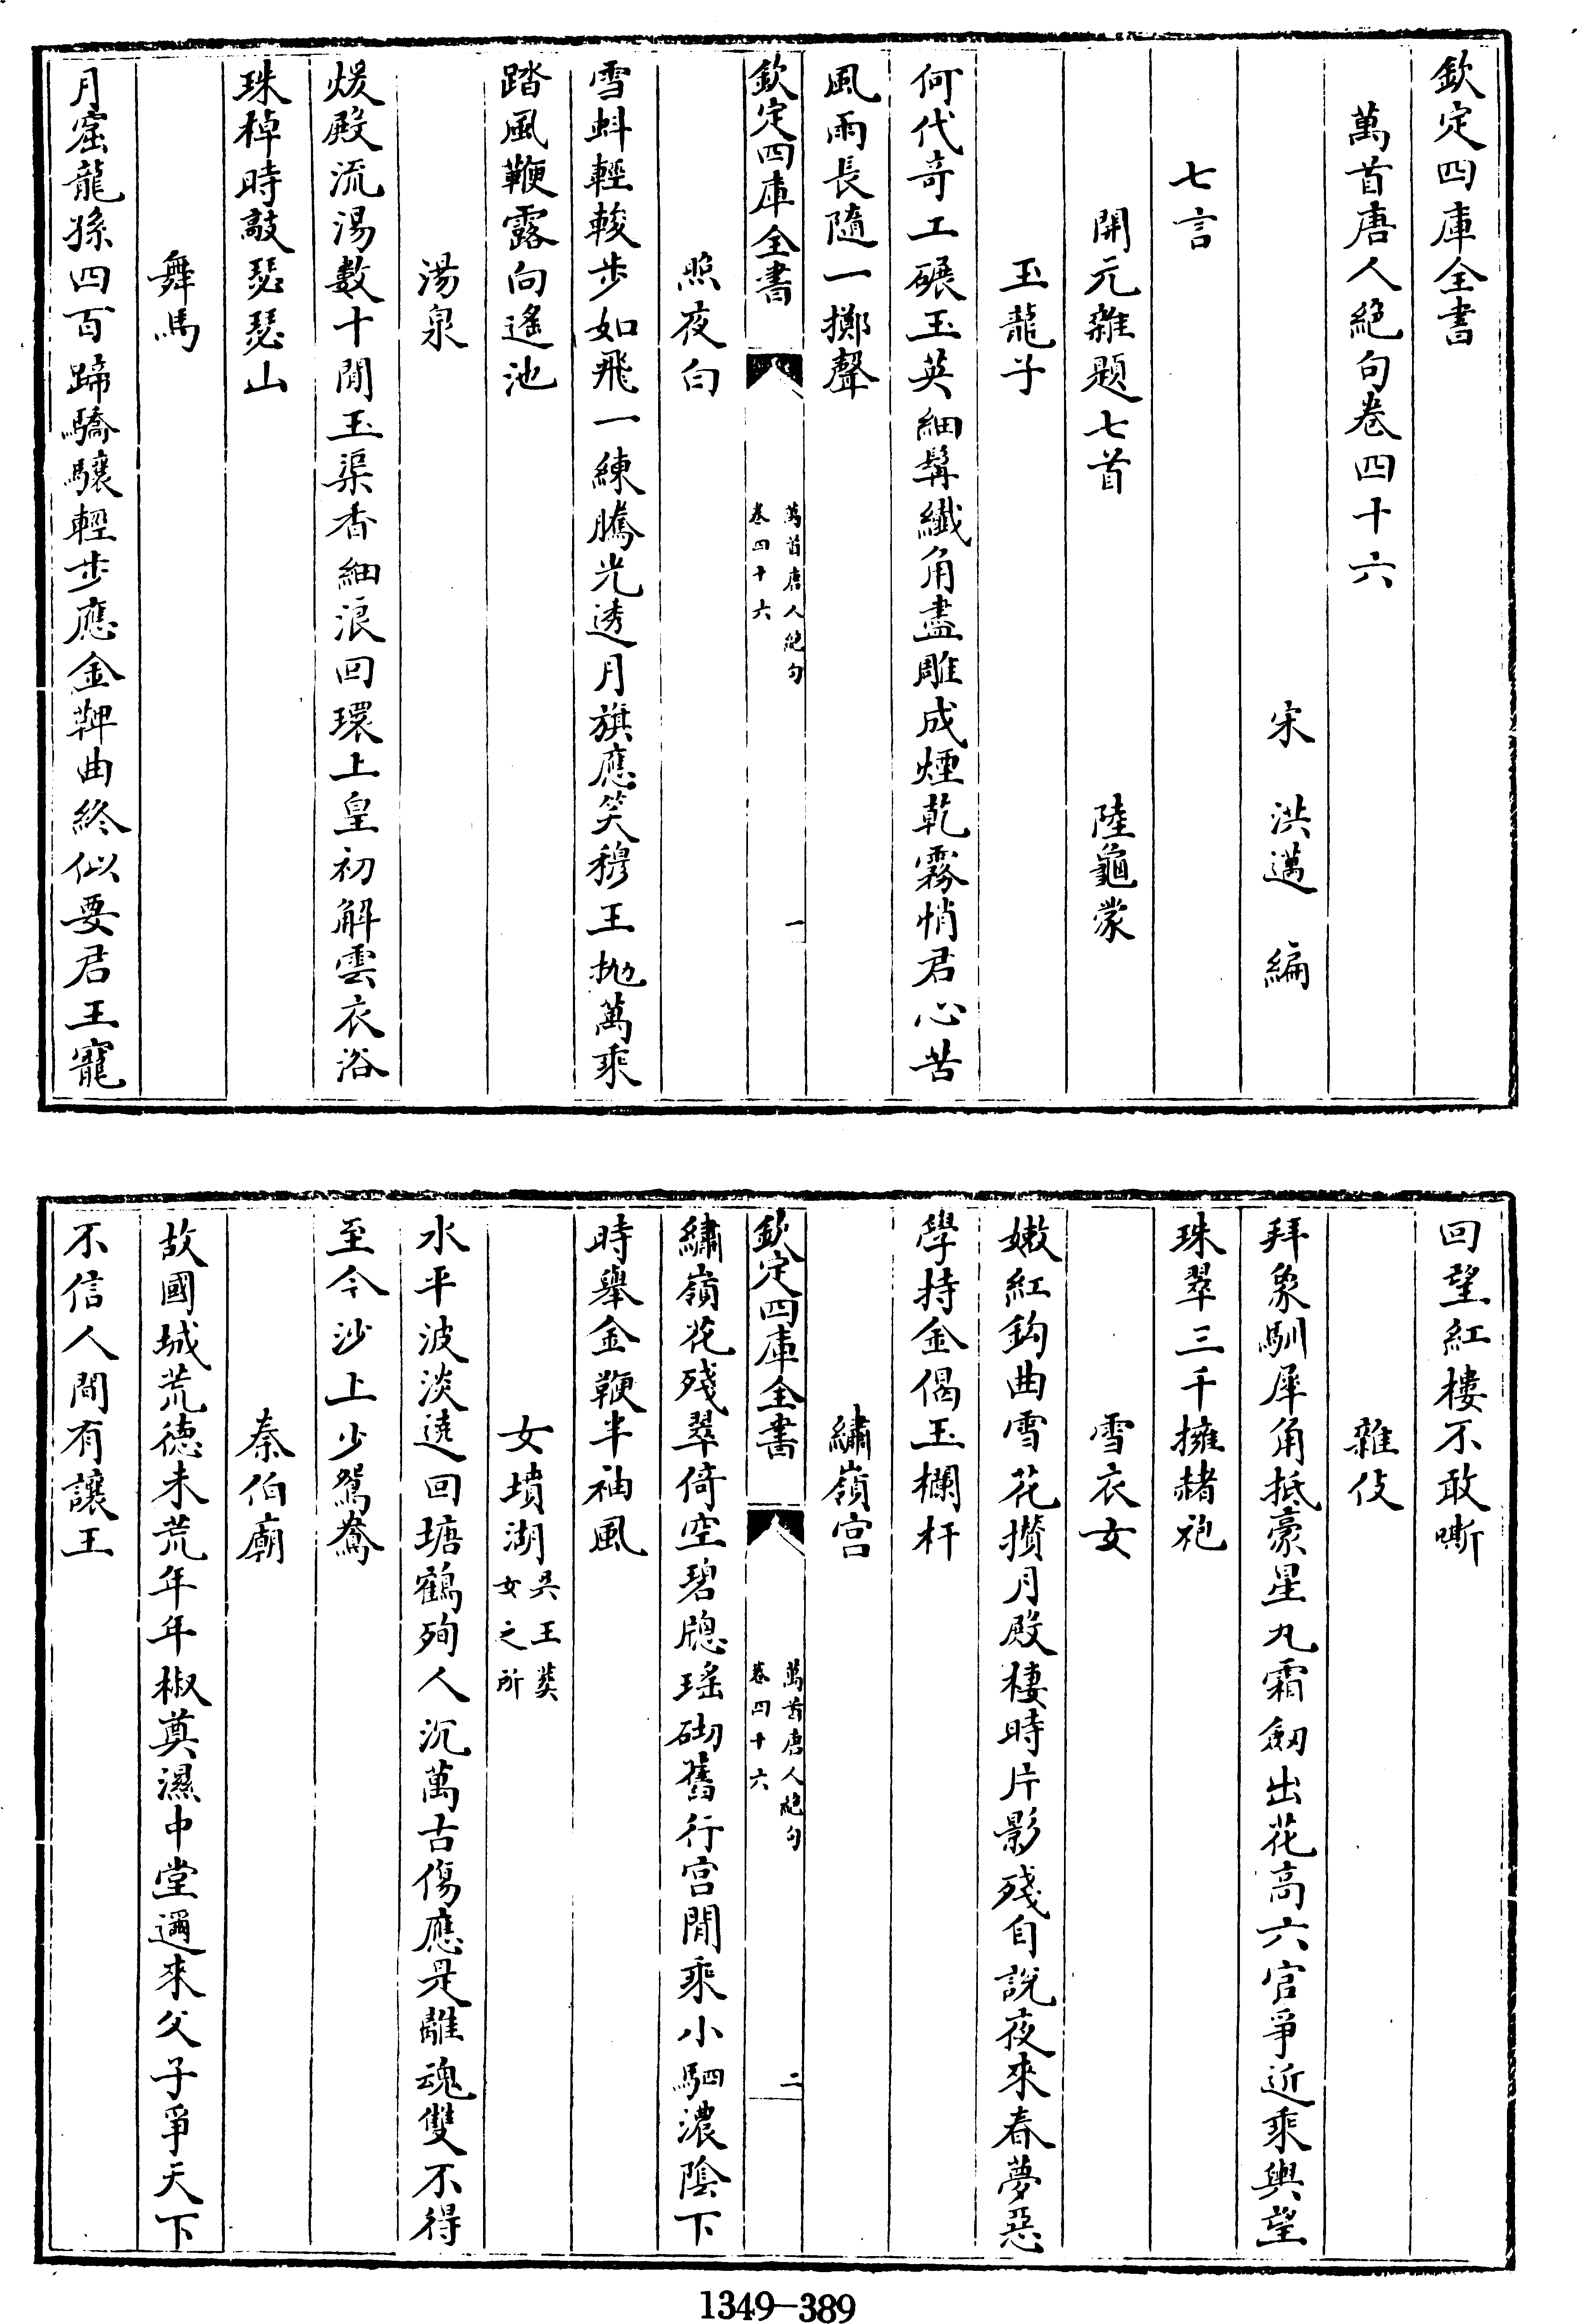 欽定四庫全書
萬首唐人絶句卷四十六
宋 洪邁 編
七言
開元雜題七首 陸龜蒙
玉龍子
何代竒工碾玉英細髯纎角盡雕成煙乾霧悄君心苦
風雨長隨一擲聲
欽定四庫全書
萬首唐人絶句
卷四十六
一
照夜白
雪蚪輕輳步如飛一練騰光透月旗應笑穆王抛萬乘
踏風鞭露向遙池
湯泉
煖殿流湯數十間玉渠香細浪回環上皇初解雲衣浴
珠棹時敲瑟瑟山
舞馬
月窟龍孫四百蹄驕驤輕步應金鞞曲終似要君王寵
回望紅樓不敢嘶
雜伎
拜象馴犀角抵豪星丸霜劒出花高六宫爭近乘輿望
珠翠三千擁赭袍
雪衣女
嫩紅鈎曲雪花攅月殿棲時片影殘自説夜來春夢惡
學持金偈玉欄杆
繡嶺宫
欽定四庫全書
萬首唐人絶句
卷四十六
二
繡嶺花殘翠倚空碧牕瑤砌舊行宫閒乘小駟濃陰下
時舉金鞭半袖風
女墳湖
吳王葬
女之所
水平波淡遶回塘鶴殉人沉萬古傷應是離魂雙不得
至今沙上少鴛鴦
秦伯廟
故國城荒徳未荒年年椒奠濕中堂邇來父子爭天下
不信人間有讓王
1349-389